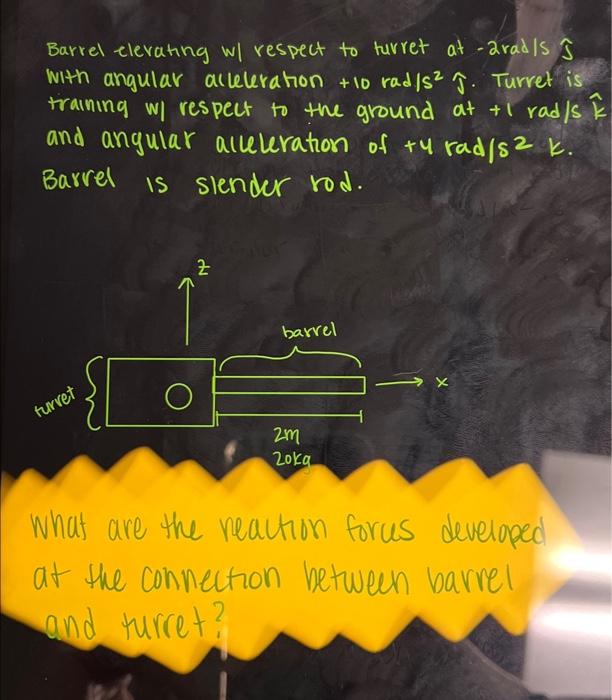 Barrel elevating w/ respect to turret at -2rad/s ĵ
with angular acceleration +10 rad/s² ĵ. Turret is
training w/ respect to the ground at +1 rad/s k̂
and angular acceleration of +4 rad/s² k.
Barrel is slender rod.
z
barrel
turret
x
2m
20kg
What are the reaction forces developed
at the connection between barrel
and turret?